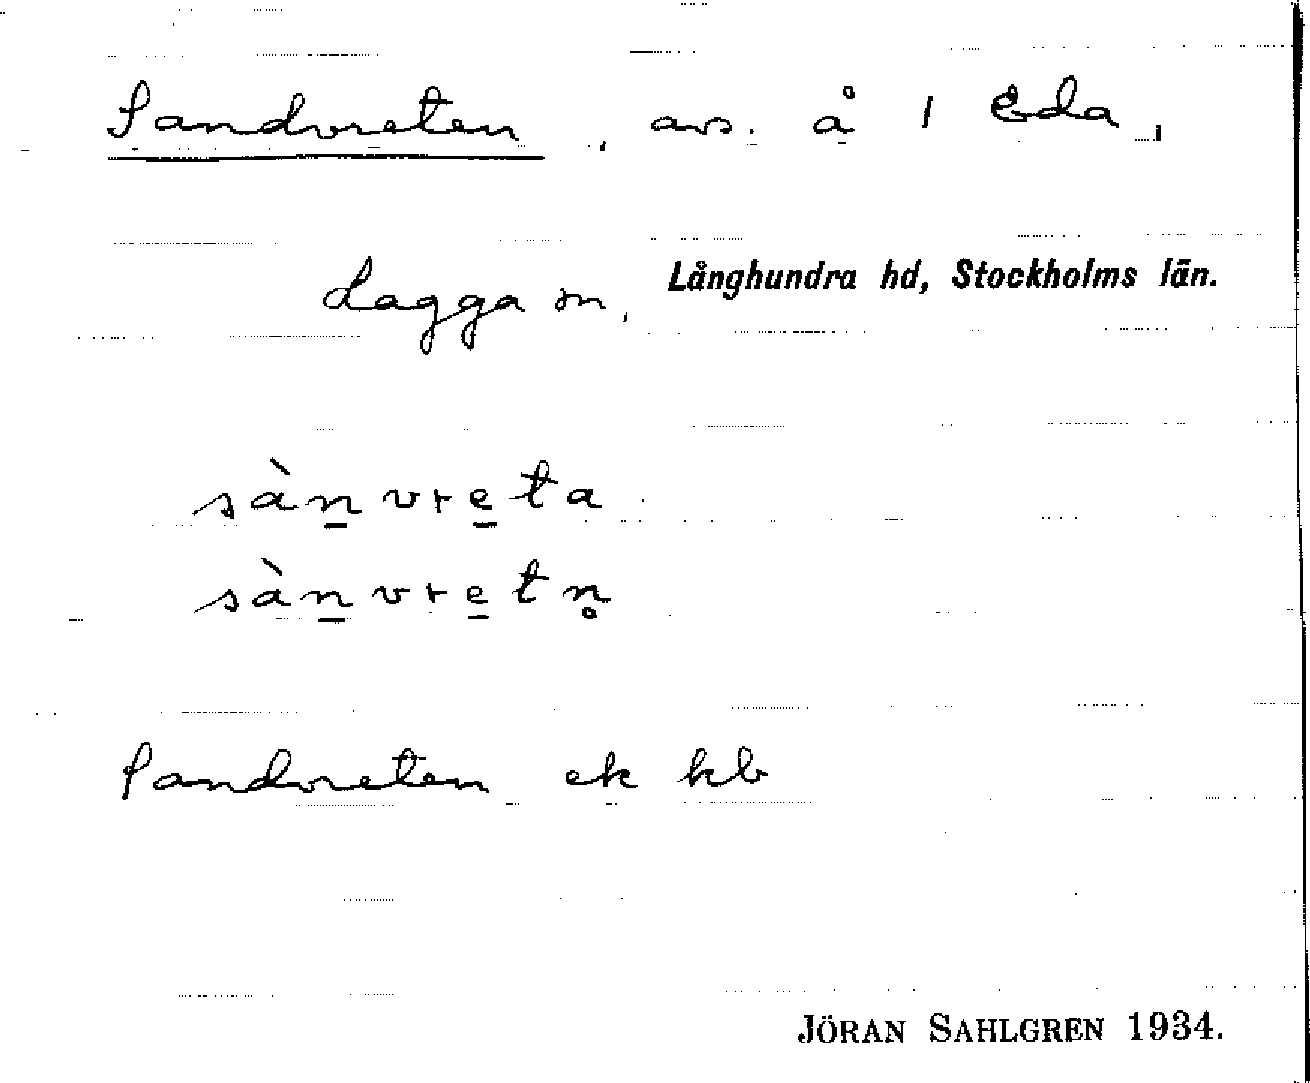 Sandvreten, avs. å 1 Eda,
Lagga sn, Långhundra hd, Stockholms län.
sàn̲vre̲ta
sàn̲vre̲tn̥
Sandvreten ek kb
JÖRAN SAHLGREN 1934.